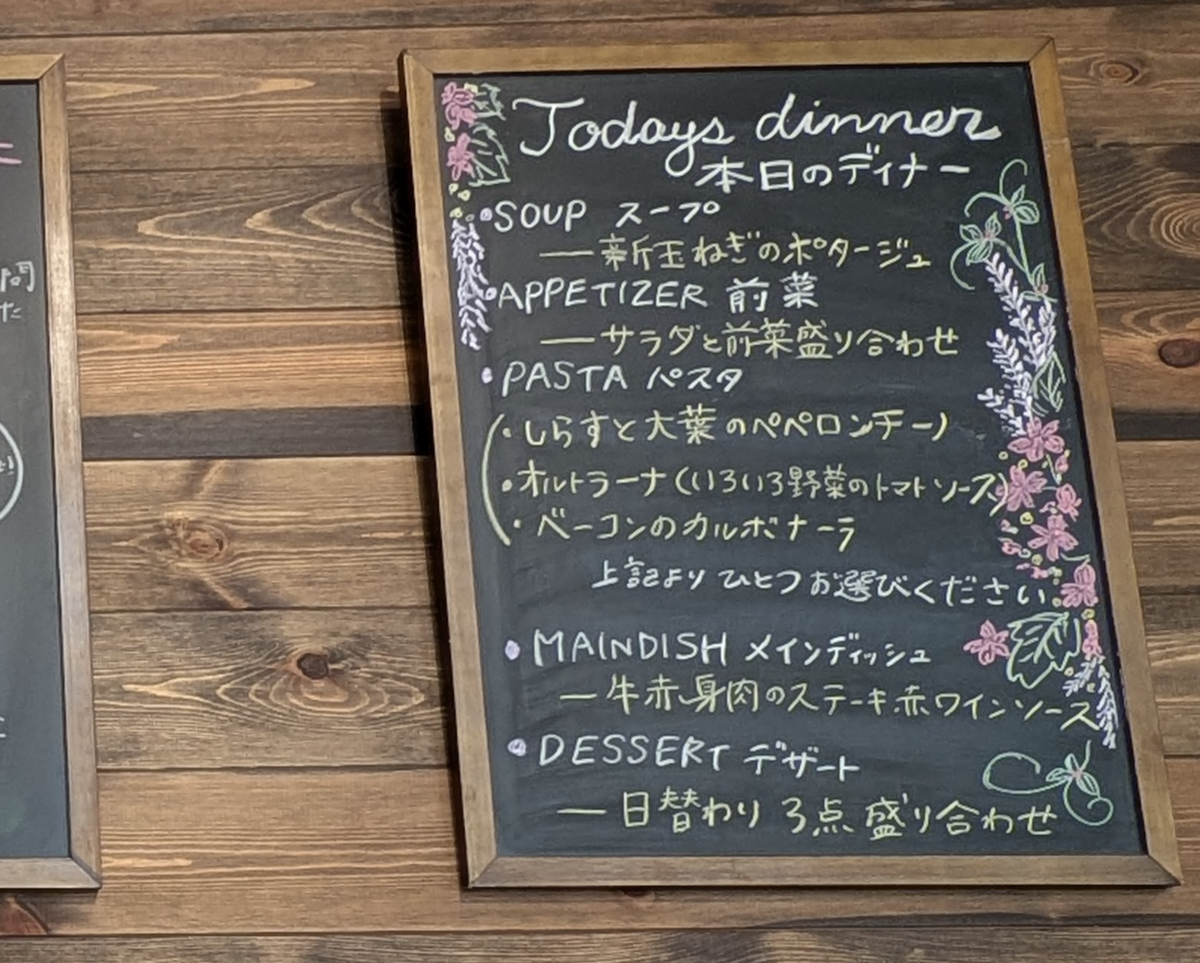 Todays dinner
本日のディナー
SOUP スープ
―新玉ねぎのポタージュ
APPETIZER 前菜
―サラダと前菜盛り合わせ
PASTA パスタ
・しらすと大葉のペペロンチーノ
・オルトラーナ(いろいろ野菜のトマトソース)
・ベーコンのカルボナーラ
上記よりひとつお選びください。
MAINDISH メインディッシュ
―牛赤身肉のステーキ赤ワインソース
DESSERT デザート
―日替わり 3点盛り合わせ
問
た